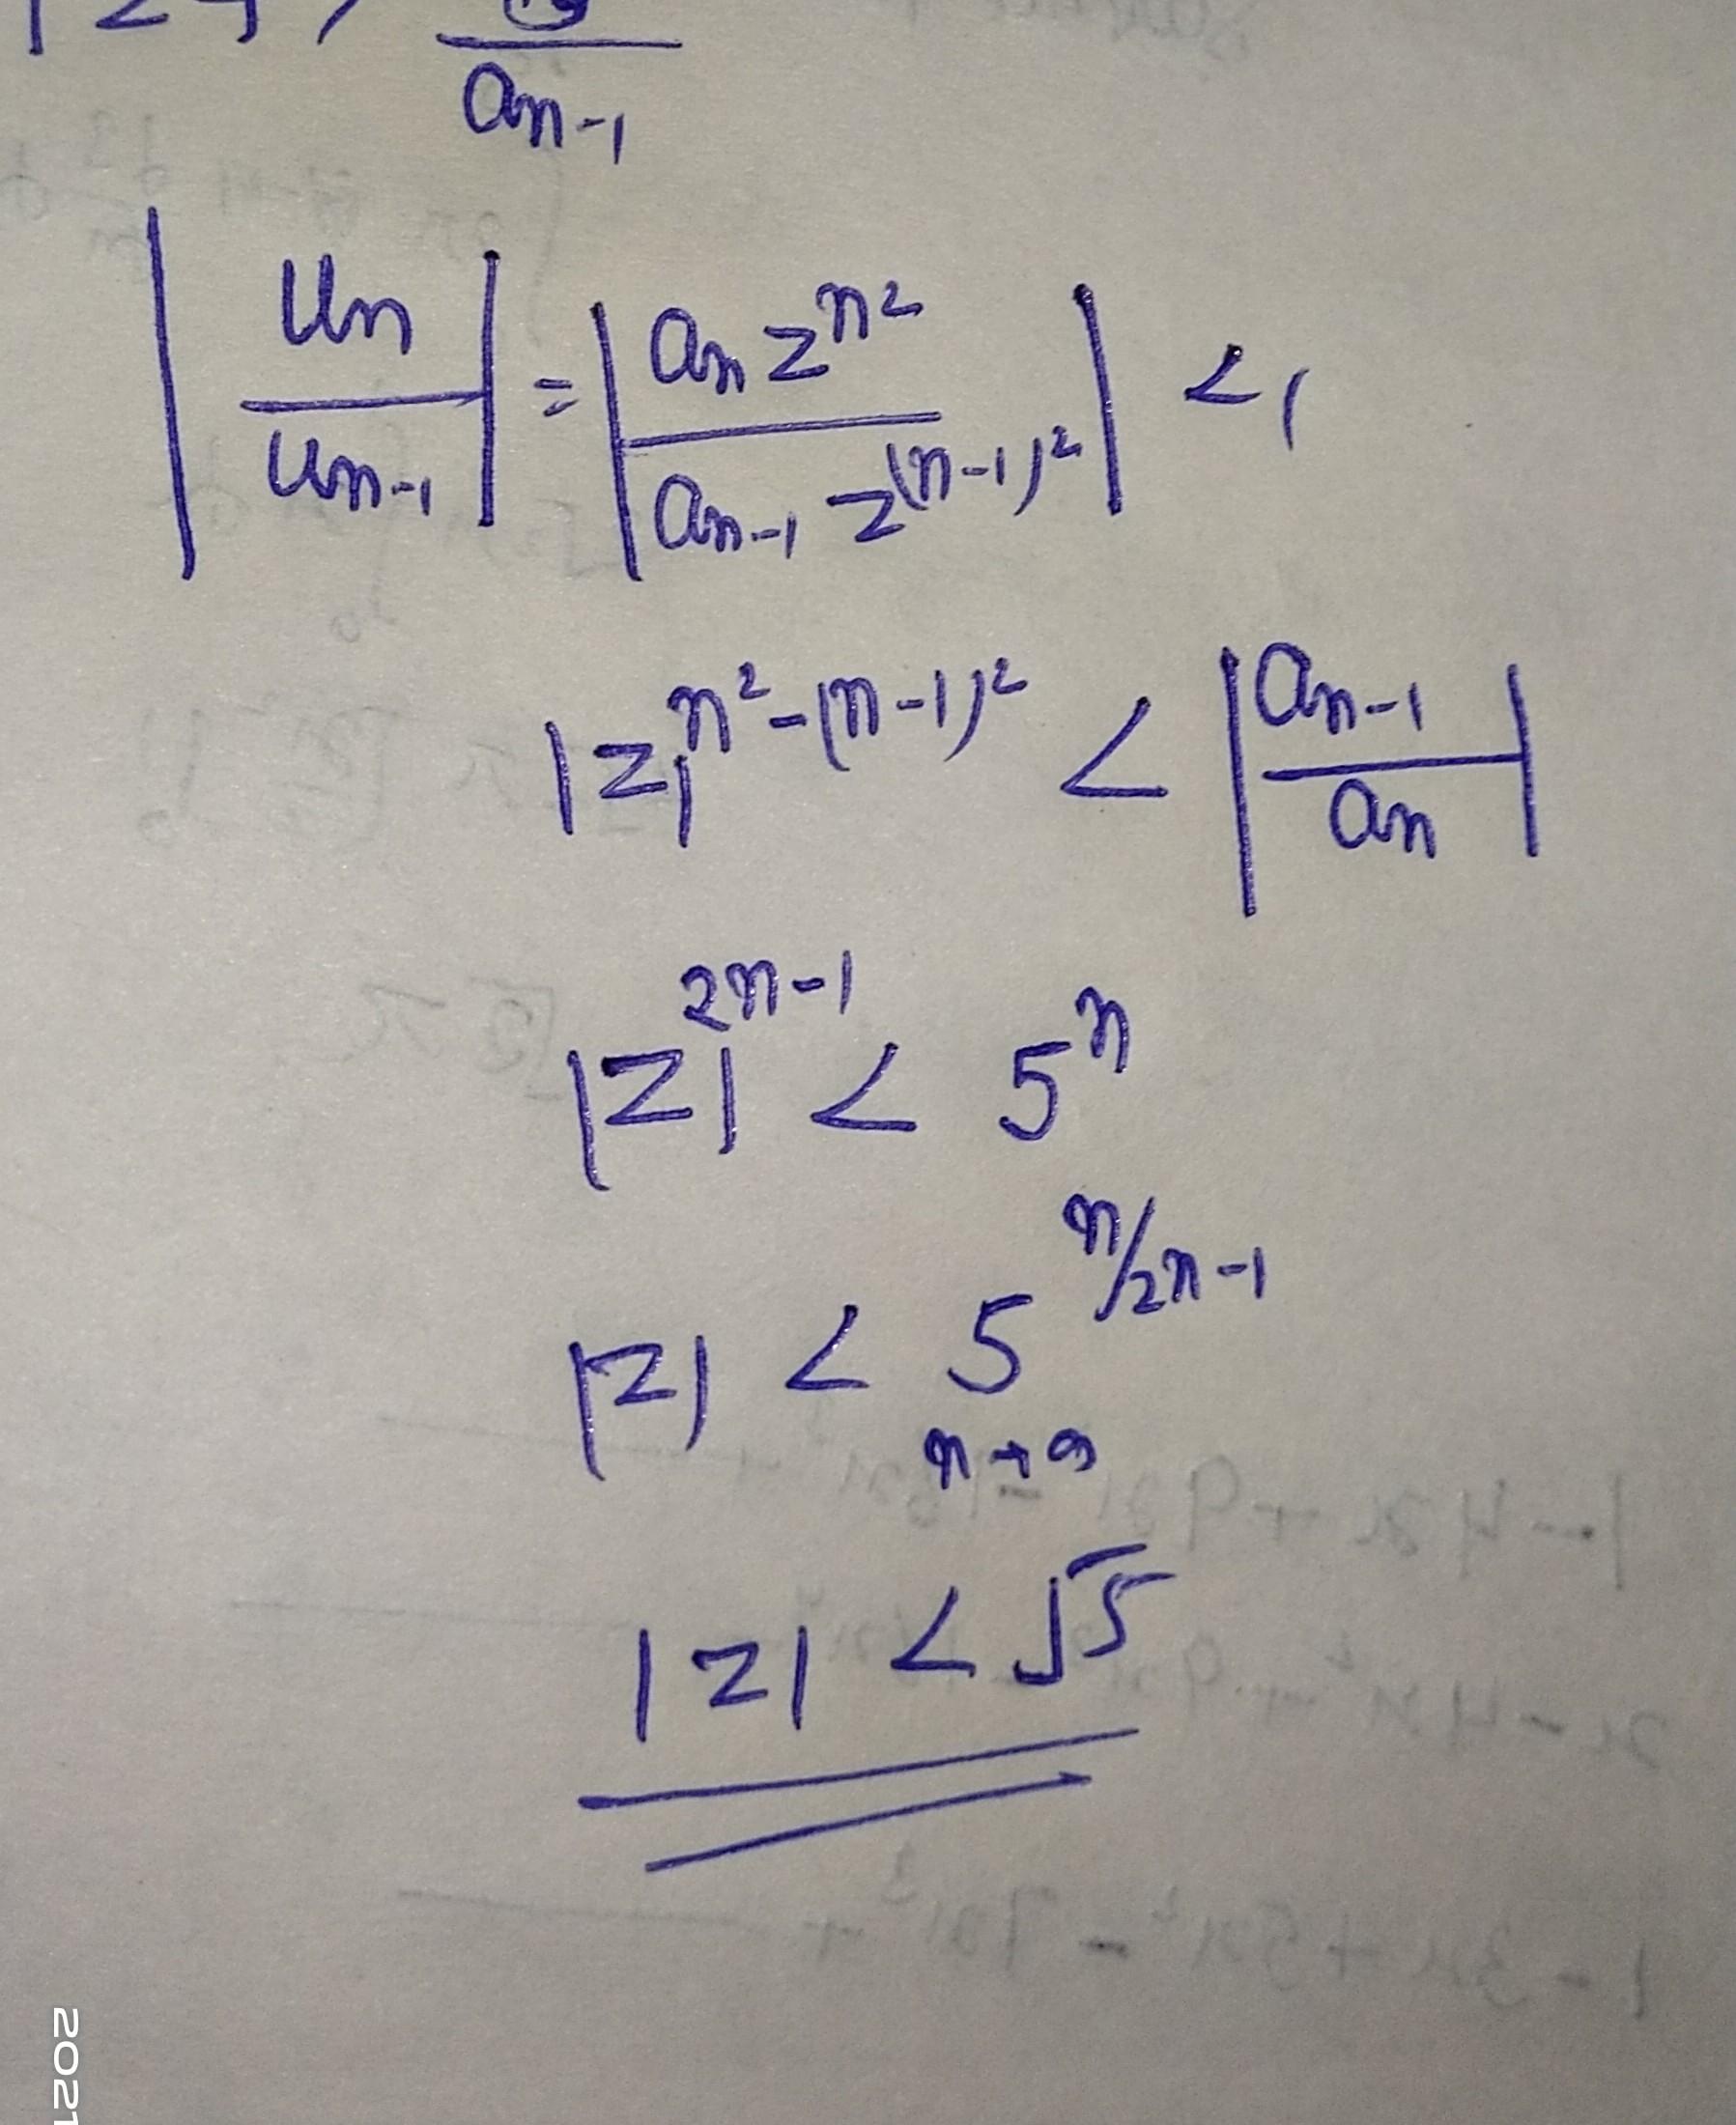 a_{n-1}
|u_n / u_{n-1}| = |a_n z^{n^2} / a_{n-1} z^{(n-1)^2}| < 1
|z|^{n^2-(n-1)^2} < |a_{n-1} / a_n|
|z|^{2n-1} < 5^n
|z| < 5^{n/2n-1}
n→∞
|z| < √5
2021